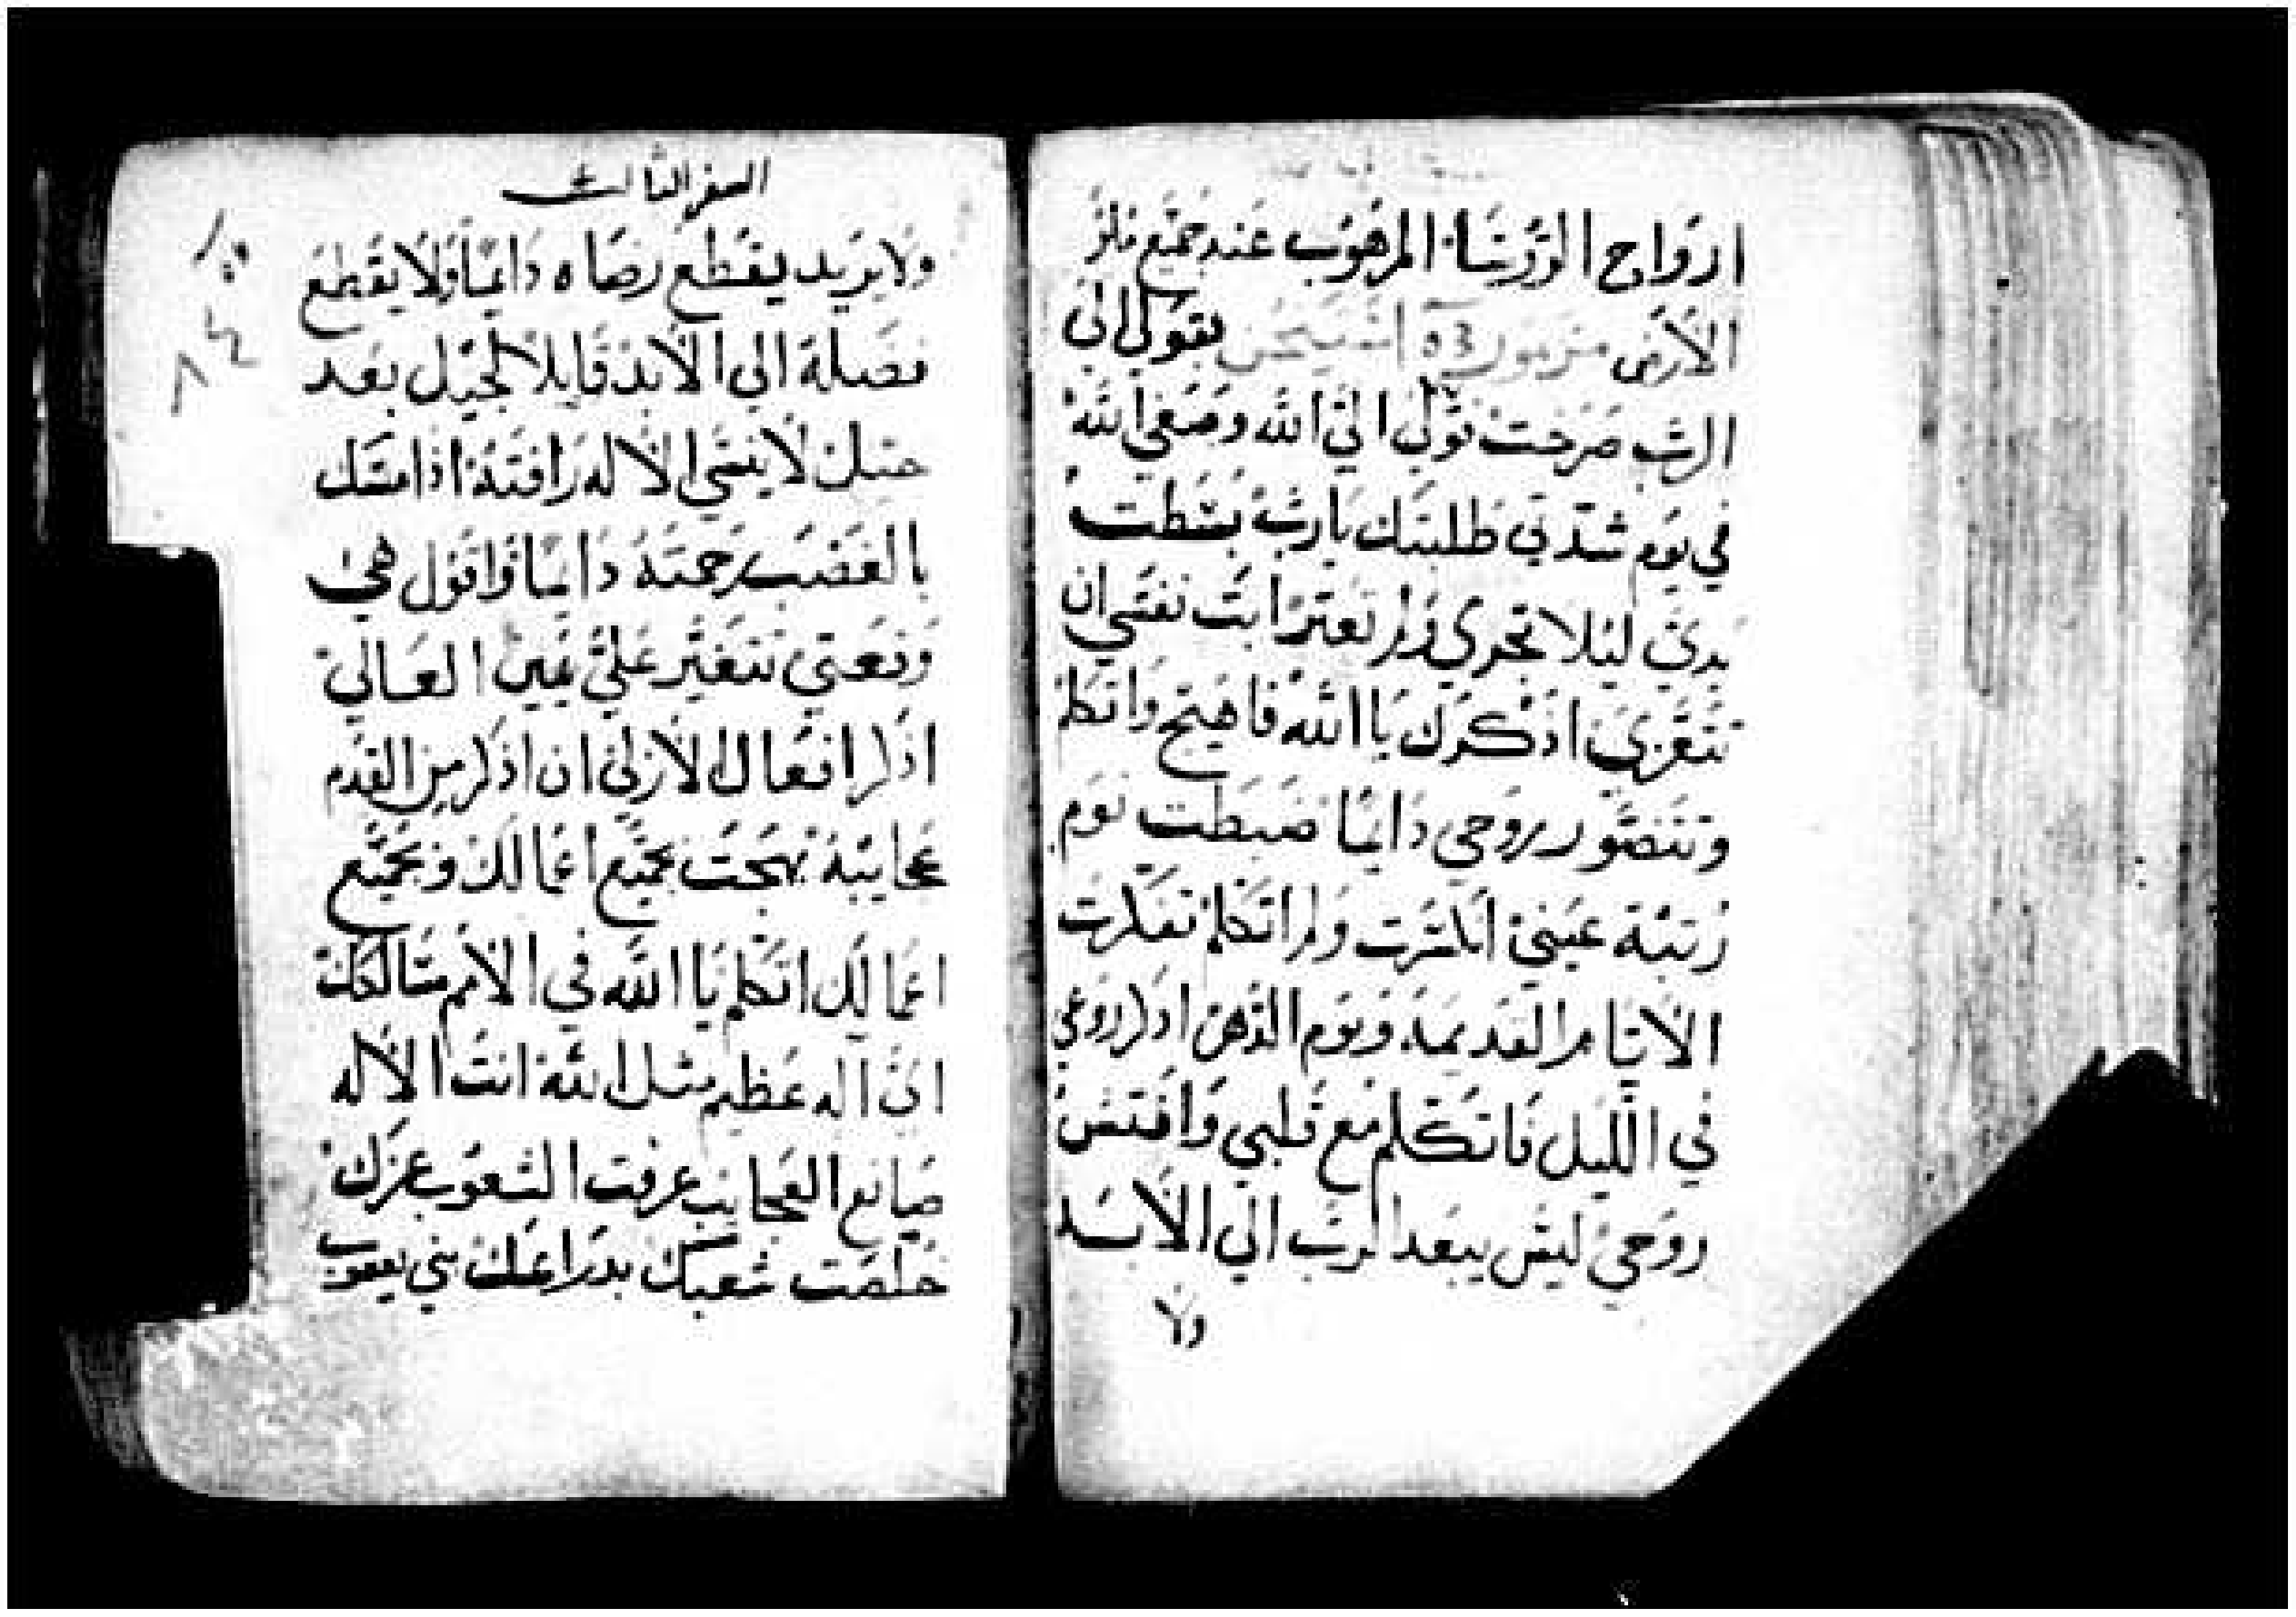 ارواح الرؤسَا المرهُوب عَند جَميْع ملُوك
الأرض مزمور
بقولي الى
الرب صرخت بقولي اليَ الله وصَغي اللهُ
في يَوم شدتي طلبتك يَارب بسَطت
يدي ليلا تجري ولم تعتر ابت نفسَي ان
تتعَزي اذكرك يَا الله فاهيَج وَاتكلم
وتتضوَر روحي دَايمًا ضبطت نوم
رُتبة عَيني انكسَرت ولم اتكلم تفكرت
الايَام القديمة ويَوم الدَهر اذكر روحي
في اللَيل فاتكَلم مع قلبي وَافتش
روحي ليسَ يبعد الرب الي الأبَد
ولا
السفر الثالث
ولا يريد يقطع رضَاه دَايمًا ولا يقطع
فضله الي الأبد قايلا لجيل بعد
جيل لا ينسَي الاله رَافته اذا مسَك
بالغضَب رَحمته دَايمًا وَاقول هي
وَنعتي تتغير عَلي يَمين العَالي
اذكر افعَال الأزلي ان اذكر من القدم
عجايبهُ نهجت بجميع اعمالك وَبجميَع
اعمالك اتكلم يَا الله في الامم مسَالكك
اي اله عَظيم مثل الله انت الاله
صَانع العجايب عرفت الشعوب عزك
خلصَت شعبك بدرَاعك بني يعقوب